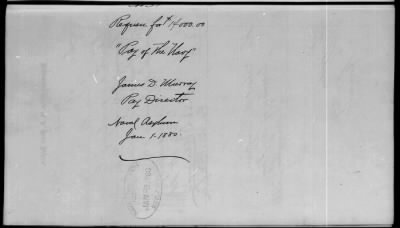 Request for $14000.00
"Pay of the Navy"
James D. Murray
Pay Director
Naval Asylum
Jan 1-1880.